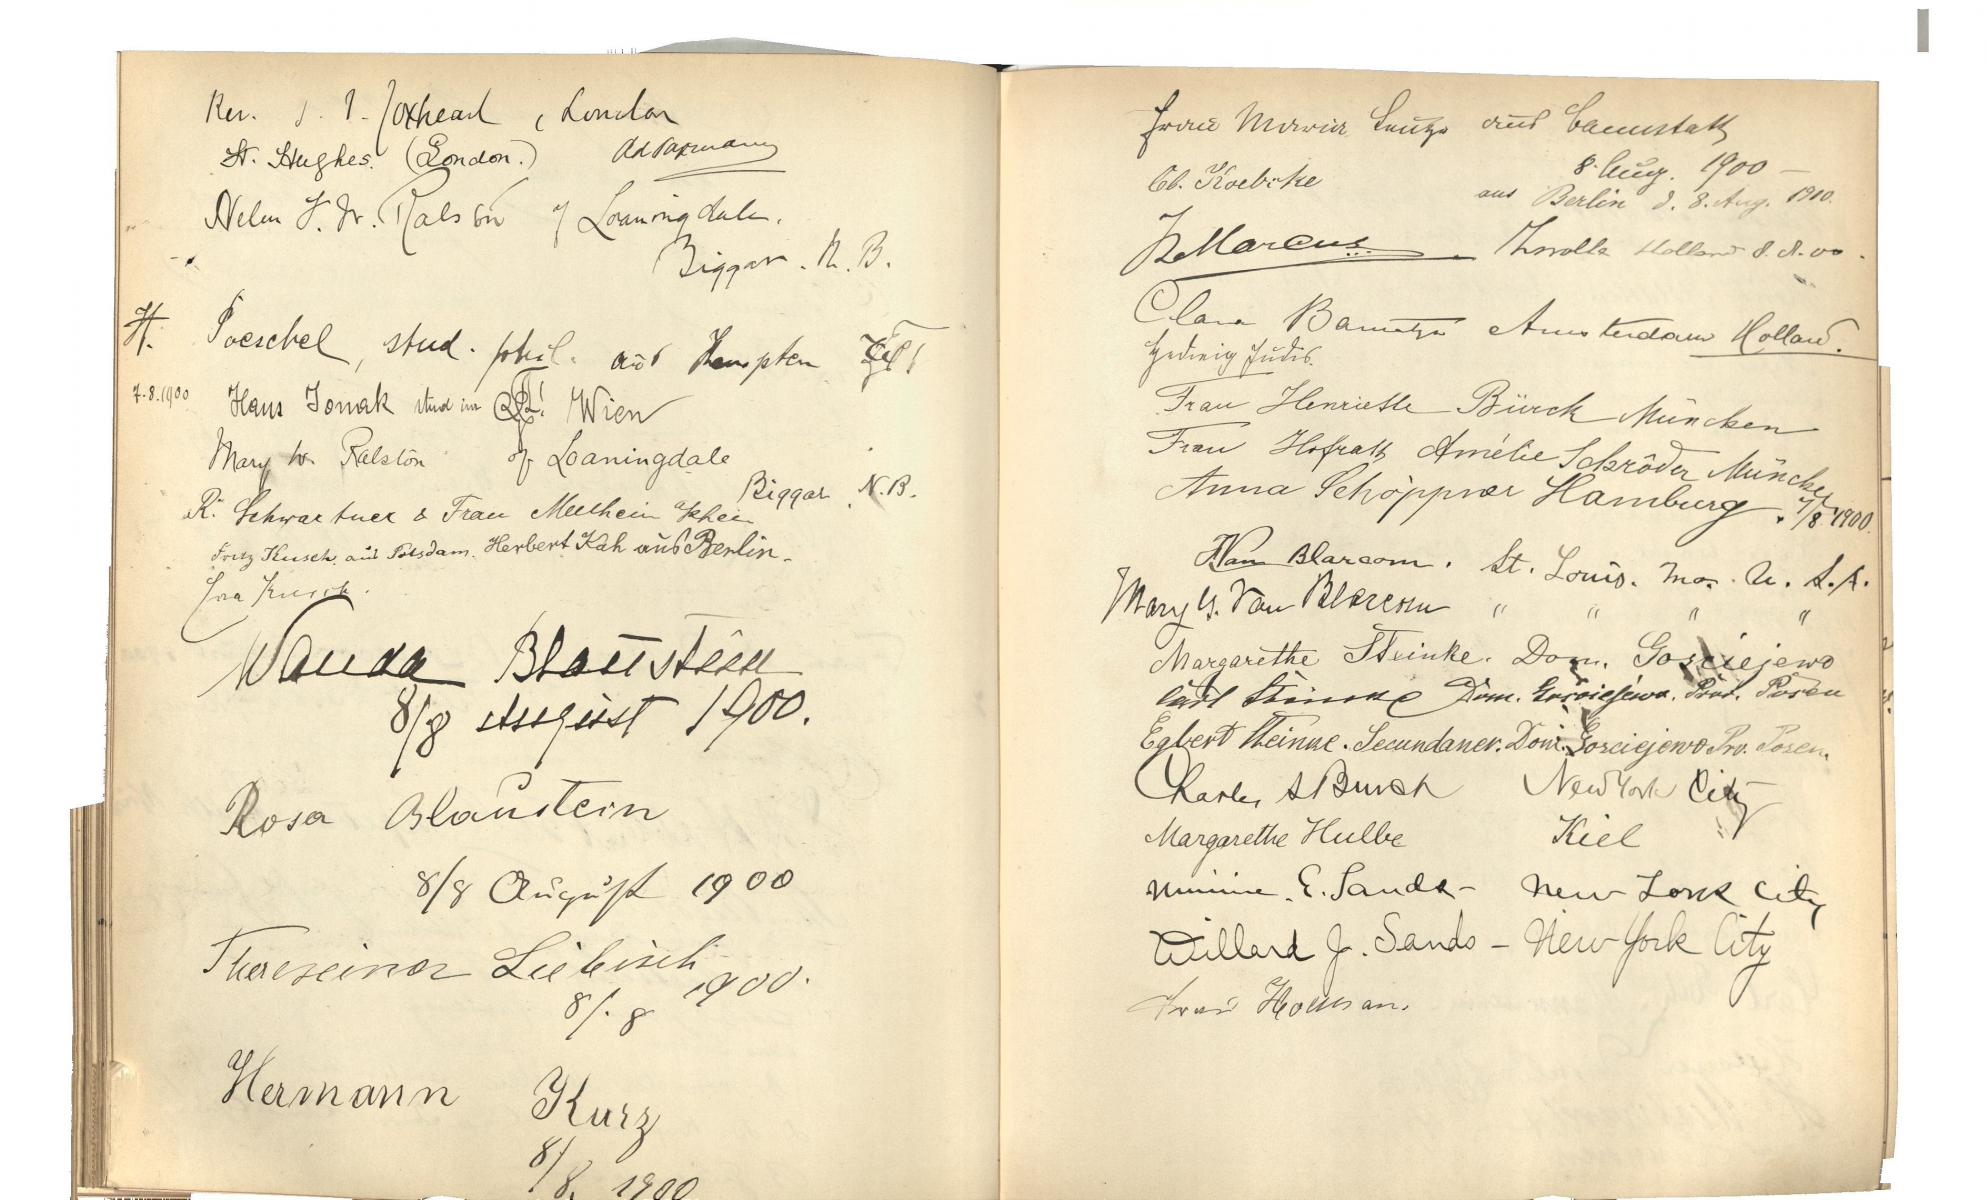 Rev. Foxhead, London
St. Hughes. (London.)
Helen Ralston of Loaningdale.
Biggar. N.B.
H. Poeschel, stud. phil. aus Kempten
7.8.1900 Hans Tomak stud Wien
Mary W. Ralston of Loaningdale
Biggar N.B.
R. Schwartner & Frau
Fritz Kusch aus Potsdam. Herbert Kah aus Berlin.
Kusch.
Wanda Blaustein
8/8 August 1900.
Rosa Blaustein
8/8 August 1900
Liebisch
8/.8 1900.
Hermann Kurz
8/8. 1900
Frau Maria aus Cannstatt
8. Aug. 1900 —
Koebcke aus Berlin d. 8. Aug. 1900.
Marcus Zwolle Holland 8.8.00.
Clara Amsterdam Holland.
Hedwig
Frau Henriette Bürck München
Frau Hofrath Amélie Schröder München
Anna Hamburg. 7/8. 1900.
Van Blarcom. St. Louis. Mo. U. S. A.
Mary Y. Van Blarcom " " " "
Margarethe Steinke. Dom. Gosciejewo
Carl Steinke Dom. Gosciejewo. Prov. Posen
Egbert Steinke. Secundaner. Dom. Gosciejewo Prv. Posen.
Charles S Burch New York City
Margarethe Hulbe Kiel
Minnie. E. Sands – New York City
Willard J. Sands – New York City